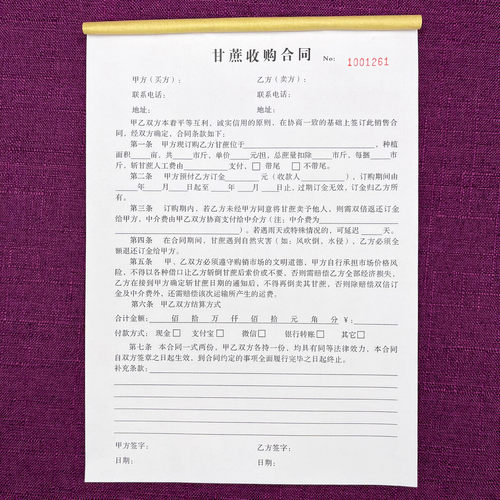 甘蔗收购合同 No: 1001261
甲方（买方）： 乙方（卖方）：
联系电话： 联系电话：
地址： 地址：
甲乙双方本着平等互利，诚实信用的原则，在协商一致的基础上签订此销售合
同，经双方确定，合同条款如下：
第一条 甲方现订购乙方甘蔗位于____________________，种植
面积____亩，共____市斤，单价____元/担，总蔗量扣除____市斤，每捆____市
斤，斩甘蔗人工费由________支付，□ 带尾 □ 不带尾。
第二条 甲方预付乙方订金______元（收款人________），订购期间由
____年____月____日起至____年____月____日止，过期订金无效，订金归乙方所
有。
第三条 订购期内，若乙方未经甲方同意将甘蔗卖予他人，则需双倍返还订金
给甲方，中介费由甲乙双方协商支付给中介方（注：中介费为__________
____________________）。若遇雨天或特殊情况的，可延迟____天。
第四条 在合同期间，甘蔗遇到自然灾害（如：风吹倒，水浸），乙方必须全
额退还订金给甲方。
第五条 甲、乙双方必须遵守购销市场的文明道德，甲方自行承担市场价格风
险，不得以各种借口让乙方斩倒甘蔗后索价或不要，否则需赔偿乙方全部经济损失，乙
方在接到甲方确定斩甘蔗日期的通知后，不得再倒卖其甘蔗，否则除赔偿双倍订
金及中介费外，还需赔偿该次运输所产生的运费。
第六条 甲乙双方结算方式
合计金额： 佰 拾 万 仟 佰 拾 元 角 分￥：
付款方式：现金□ 支付宝□ 微信□ 银行转账□ 其它□
第七条 本合同一式两份，甲乙双方各持一份，均具有同等法律效力，本合同
自双方签章之日起生效，到合同约定的事项全面履行完毕之日起终止。
补充条款：
甲方签字： 乙方签字：
日期： 日期：